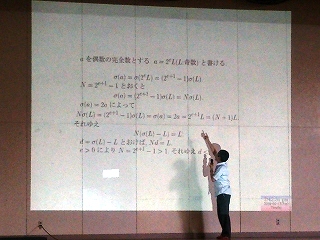 a を偶数の完全数とする a = 2^e L(L:奇数) と書ける.
σ(a) = σ(2^e L) = (2^{e+1} − 1)σ(L)
N = 2^{e+1} − 1 とおくと
σ(a) = (2^{e+1} − 1)σ(L) = Nσ(L).
σ(a) = 2a によって
Nσ(L) = (2^{e+1} − 1)σ(L) = σ(a) = 2a = 2^{e+1}L = (N + 1)L.
それゆえ
N(σ(L) − L) = L.
d = σ(L) − L とおけば, Nd = L.
e > 0 により N = 2^{e+1} − 1 > 1. それゆえ d